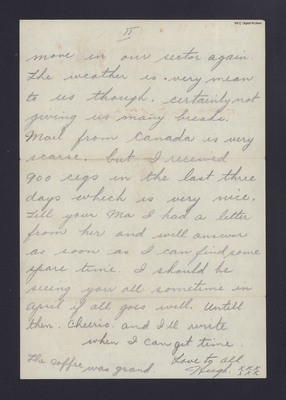 II
move in our sector again.
The weather is very mean
to us though. certainly not
giving us many breaks.
Mail from Canada is very
scarse. but I received
900 cigs in the last three
days which is very nice.
Tell your Ma I had a letter
from her and will answer
as soon as I can find some
spare time. I should be
seeing you all sometime in
April if all goes well. Untill
then. Cheerio. and I'll write
when I can get time.
Love to all
The coffee was grand. Hugh. XXX
XXX